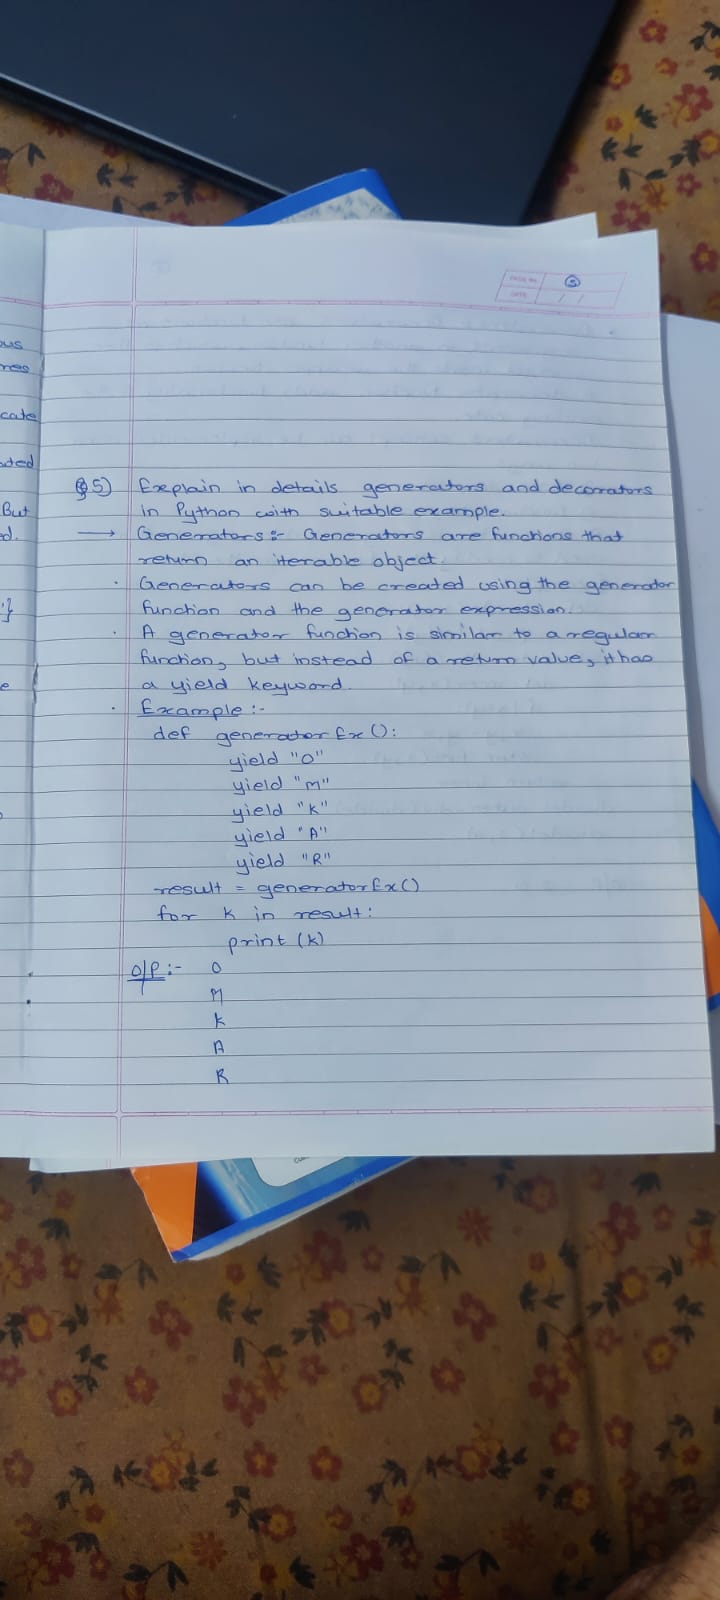 PAGE No. 5
DATE / /
ous
cate
ated
But
d.
e
Q5) Explain in details generators and decorators
in Python with suitable example.
→ Generators :- Generators are functions that
return an iterable object.
· Generators can be created using the generator
function and the generator expression.
· A generator function is similar to a regular
function, but instead of a return value, it has
a yield keyword.
· Example :-
def generatorEx():
yield "O"
yield "M"
yield "K"
yield "A"
yield "R"
result = generatorEx()
for k in result:
print (k)
O/P :- O
M
K
A
R